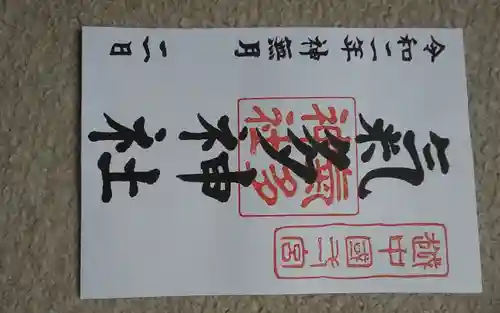 越中國弌宮
氣多神社
氣多神社
令和二年神無月 二日